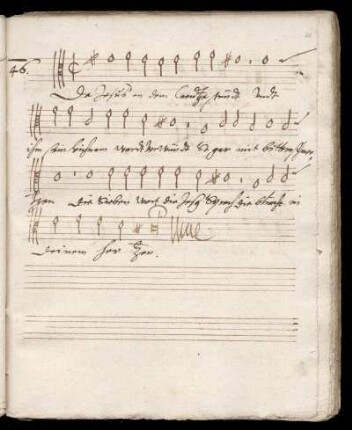 46.
Da Jesus an dem Creutze stundt undt
ihm sein leichnam ward verwundt so gar mit bittern schmer-
tzen die sieben wort die Jesus sprach die betracht in
deinem her tzen.